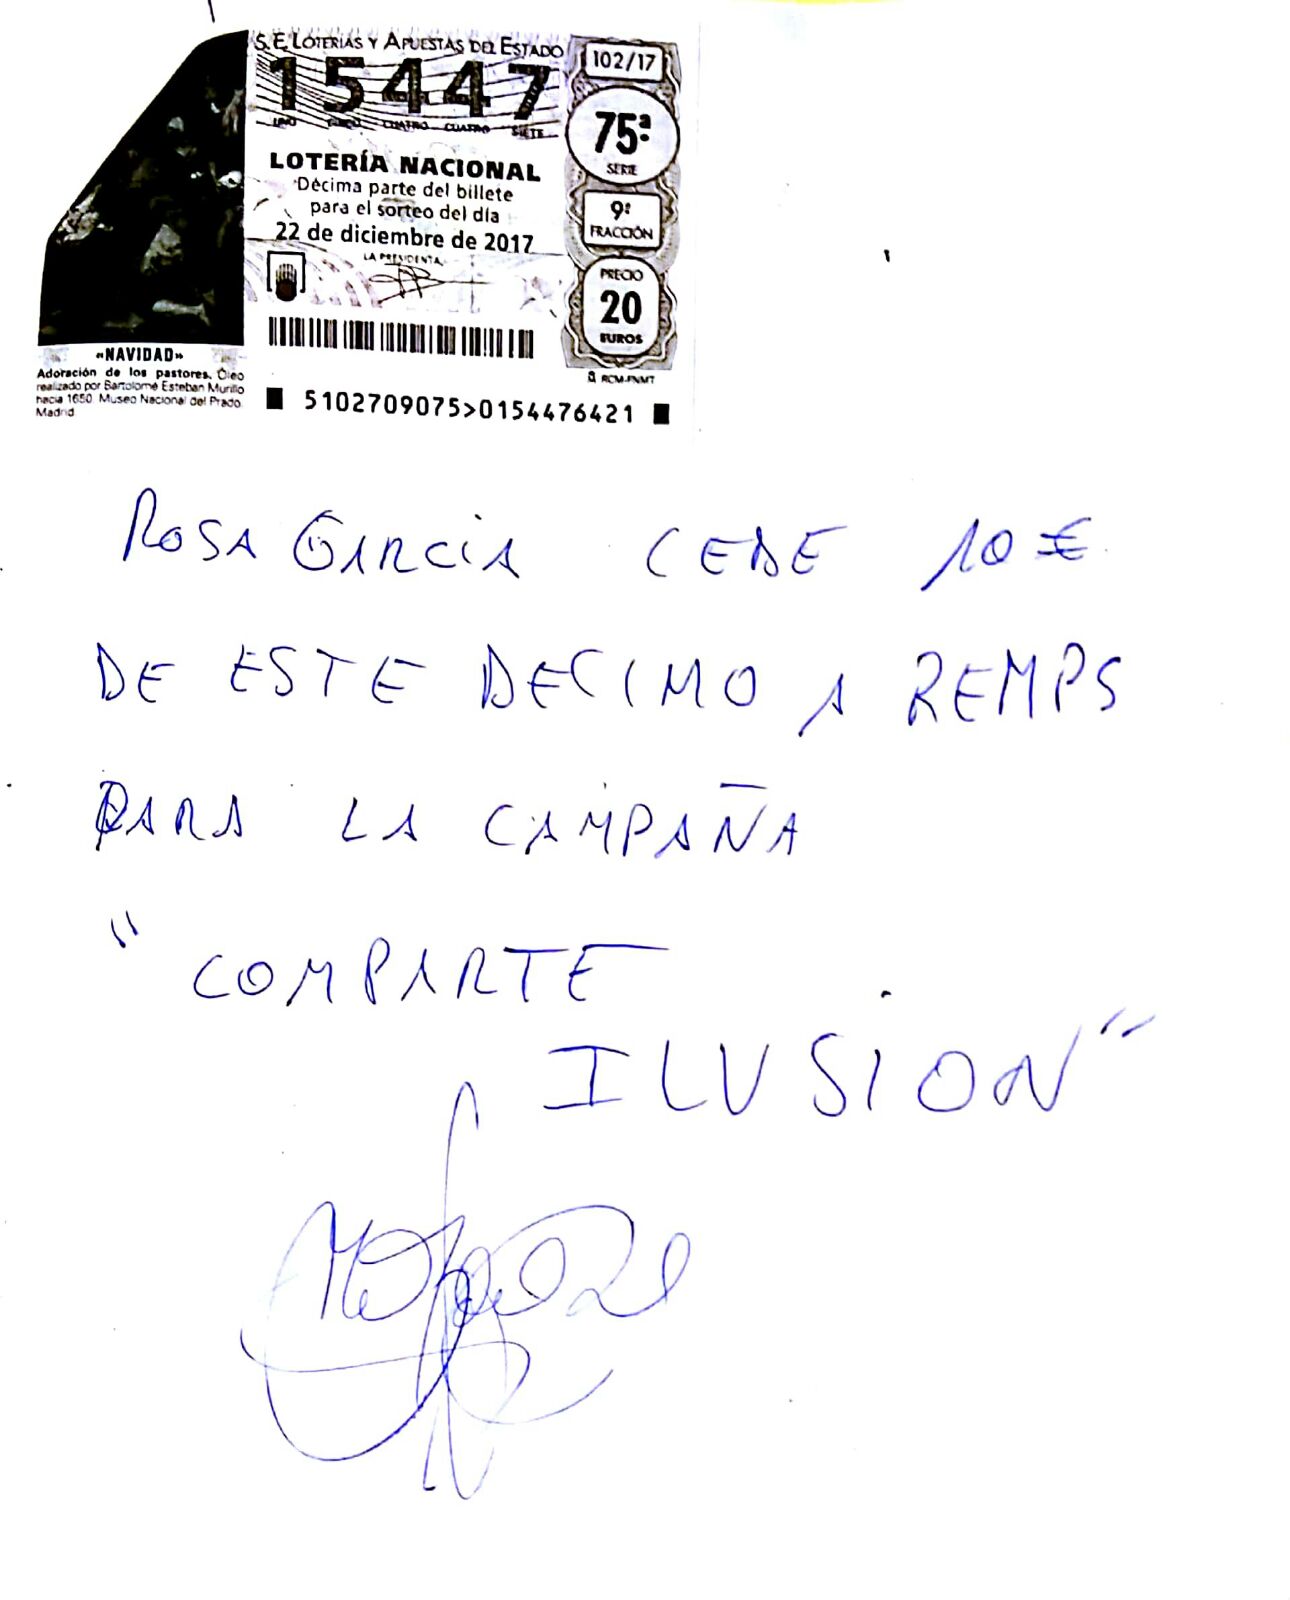 S.E. LOTERÍAS Y APUESTAS DEL ESTADO
15447
UNO CINCO CUATRO CUATRO SIETE
LOTERÍA NACIONAL
Décima parte del billete
para el sorteo del día
22 de diciembre de 2017
LA PRESIDENTA,
102/17
75ª
SERIE
9ª
FRACCIÓN
PRECIO
20
EUROS
RCM-FNMT
«NAVIDAD»
Adoración de los pastores. Óleo
realizado por Bartolomé Esteban Murillo
hacia 1650. Museo Nacional del Prado.
Madrid
5102709075>0154476421
ROSA GARCIA CEDE 10 €
DE ESTE DECIMO A REMPS
PARA LA CAMPAÑA
"COMPARTE
ILUSION"